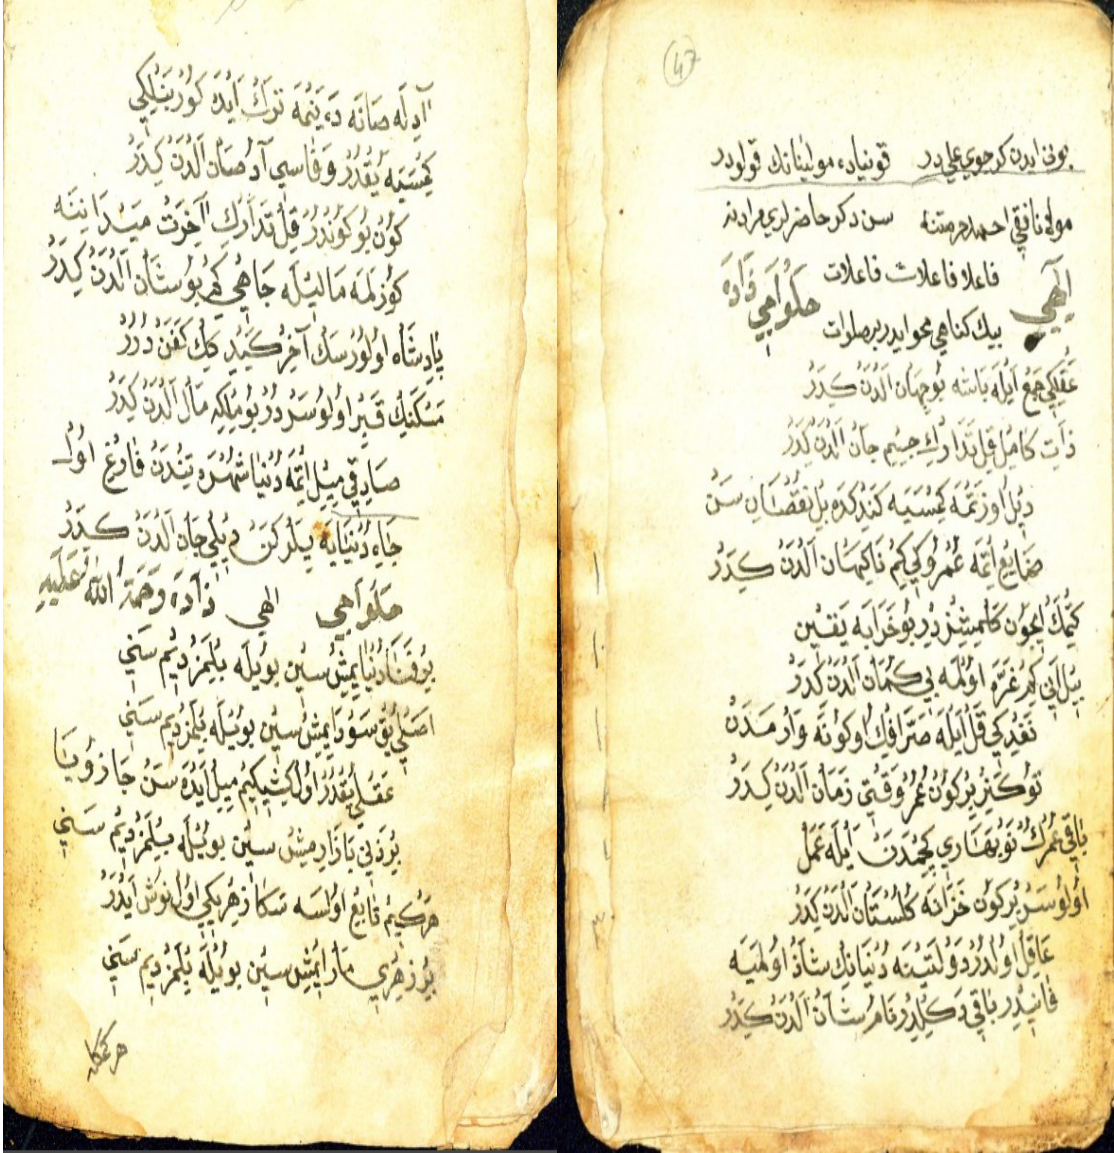 47
بونی ایدن کرجوی علی در قونیاده مولینانك قولودر
سن دكر حاضرلری مرادنه
الهی
فاعلا فاعلات فاعلات
حلواجی زاده
بیك كناهی محو ایدر بر صلوات
عَقْلِكِی جَمْعْ اَیْلَه بَاشَه بُو جِهَانْ اَلْدَنْ كِدَرْ
ذَاتِ كَامِلْ قِلْ تَدَارُكِ جِسْمِ جَانْ اَلْدَنْ كِدَرْ
دِیلْ اُوزَتْمَه كِمْسَیَه كَنْدُكْدَه بِلْ نُقْصَانِ سَنْ
ضَایِعْ اِتْمَه عُمْرُوكِی كِمْ نَاكِهَانْ اَلْدَنْ كِدَرْ
كِتْمَكْ اِیچُونْ كَلْمِشُزْدِرْ بُو خَرَابَه یَقِینْ
بِیلْ اَنِی كِمْ غَرَّه اُولْمَه بِی كُمَانْ اَلْدَنْ كِدَرْ
نَقْدِكِی قَلْ اَیْلَه صَرَّافُكْ اُوكُونَه وَارْمَدَنْ
تُوكَنُرْ بِرْكُونْ عُمُرْ وَقْتِی زَمَانْ اَلْدَنْ كِدَرْ
بَاقِی عُمْرُكْ نَوْبَهَارِی كَچْمَدَنْ اَیْلَه عَمَلْ
اُولُوسَرْ بِرْكُونْ خَزَانَه كُلُسْتَانْ اَلْدَنْ كِدَرْ
عَاقِلْ اُولْدُرْ دَوْلَتِینَه دُنْیَانِكْ شَادْ اُولْمَیَه
فَانِیدِرْ بَاقِی دَكِلْدِرْ نَامْ شَانْ اَلْدَنْ كِدَرْ
آدِلَه صَانَه دَیَنْمَه تَرْكْ اَیْدَه كُورْ بَنْلِكِی
كِمْسَیَه یُقْدُرْ وَفَاسِی آدْ صَانْ اَلْدَنْ كِدَرْ
كُونْ بُو كُونْدُرْ قِلْ تَدَارُكْ آخِرَتْ مَیْدَانِنَه
كُوزْلَمَه مَالِیْلَه جَاهِی كِمْ بُوسْتَانْ اَلْدَنْ كِدَرْ
پَادِشَاه اُولُورْسَكْ آخِرْ كَیَه جِكِكْ كَفَنْ دُرُرْ
مَسْكَنِكْ قَبِرْ اُولُوسَرْدُرْ بُو مُلْكِه مَالْ اَلْدَنْ كِدَرْ
صَادِقِی مِیلْ اِتْمَه دُنْیَا شُهْرَه تِنْدَنْ فَارِغْ اُولْ
جَاهِ دُنْیَایَه بِیلُركَنْ دِیلِی جَانْ اَلْدَنْ كِدَرْ
حلواجی الهی زاده رحمة الله علیه
بِیوَفَنَا دُنْیَا یمِشْ سِینْ بویله بِلْمَزْدِیمْ سَنِی
اَصْلِی یُقْ سَوْدَا یمِشْ سِینْ بویله بِلْمَزْدِیمْ سَنِی
عَقْلِی یُقْدُرْ اُول كِشِینِكِیمْ مِیلْ ایَدَه سَنْ جَازُویَا
بُرْدَنِی بَازَارِمِشْ سِینْ بویله بِلْمَزْدِیمْ سَنِی
هَرْكِیمْ قَایِعْ اُولْسَه سَكَا زَهْرِكِی اُولْ نُوشْ ایَدَرْ
بُرْ زَهْرِی مَارْ ایمِشْ سِینْ بویله بِلْمَزْدِیمْ سَنِی